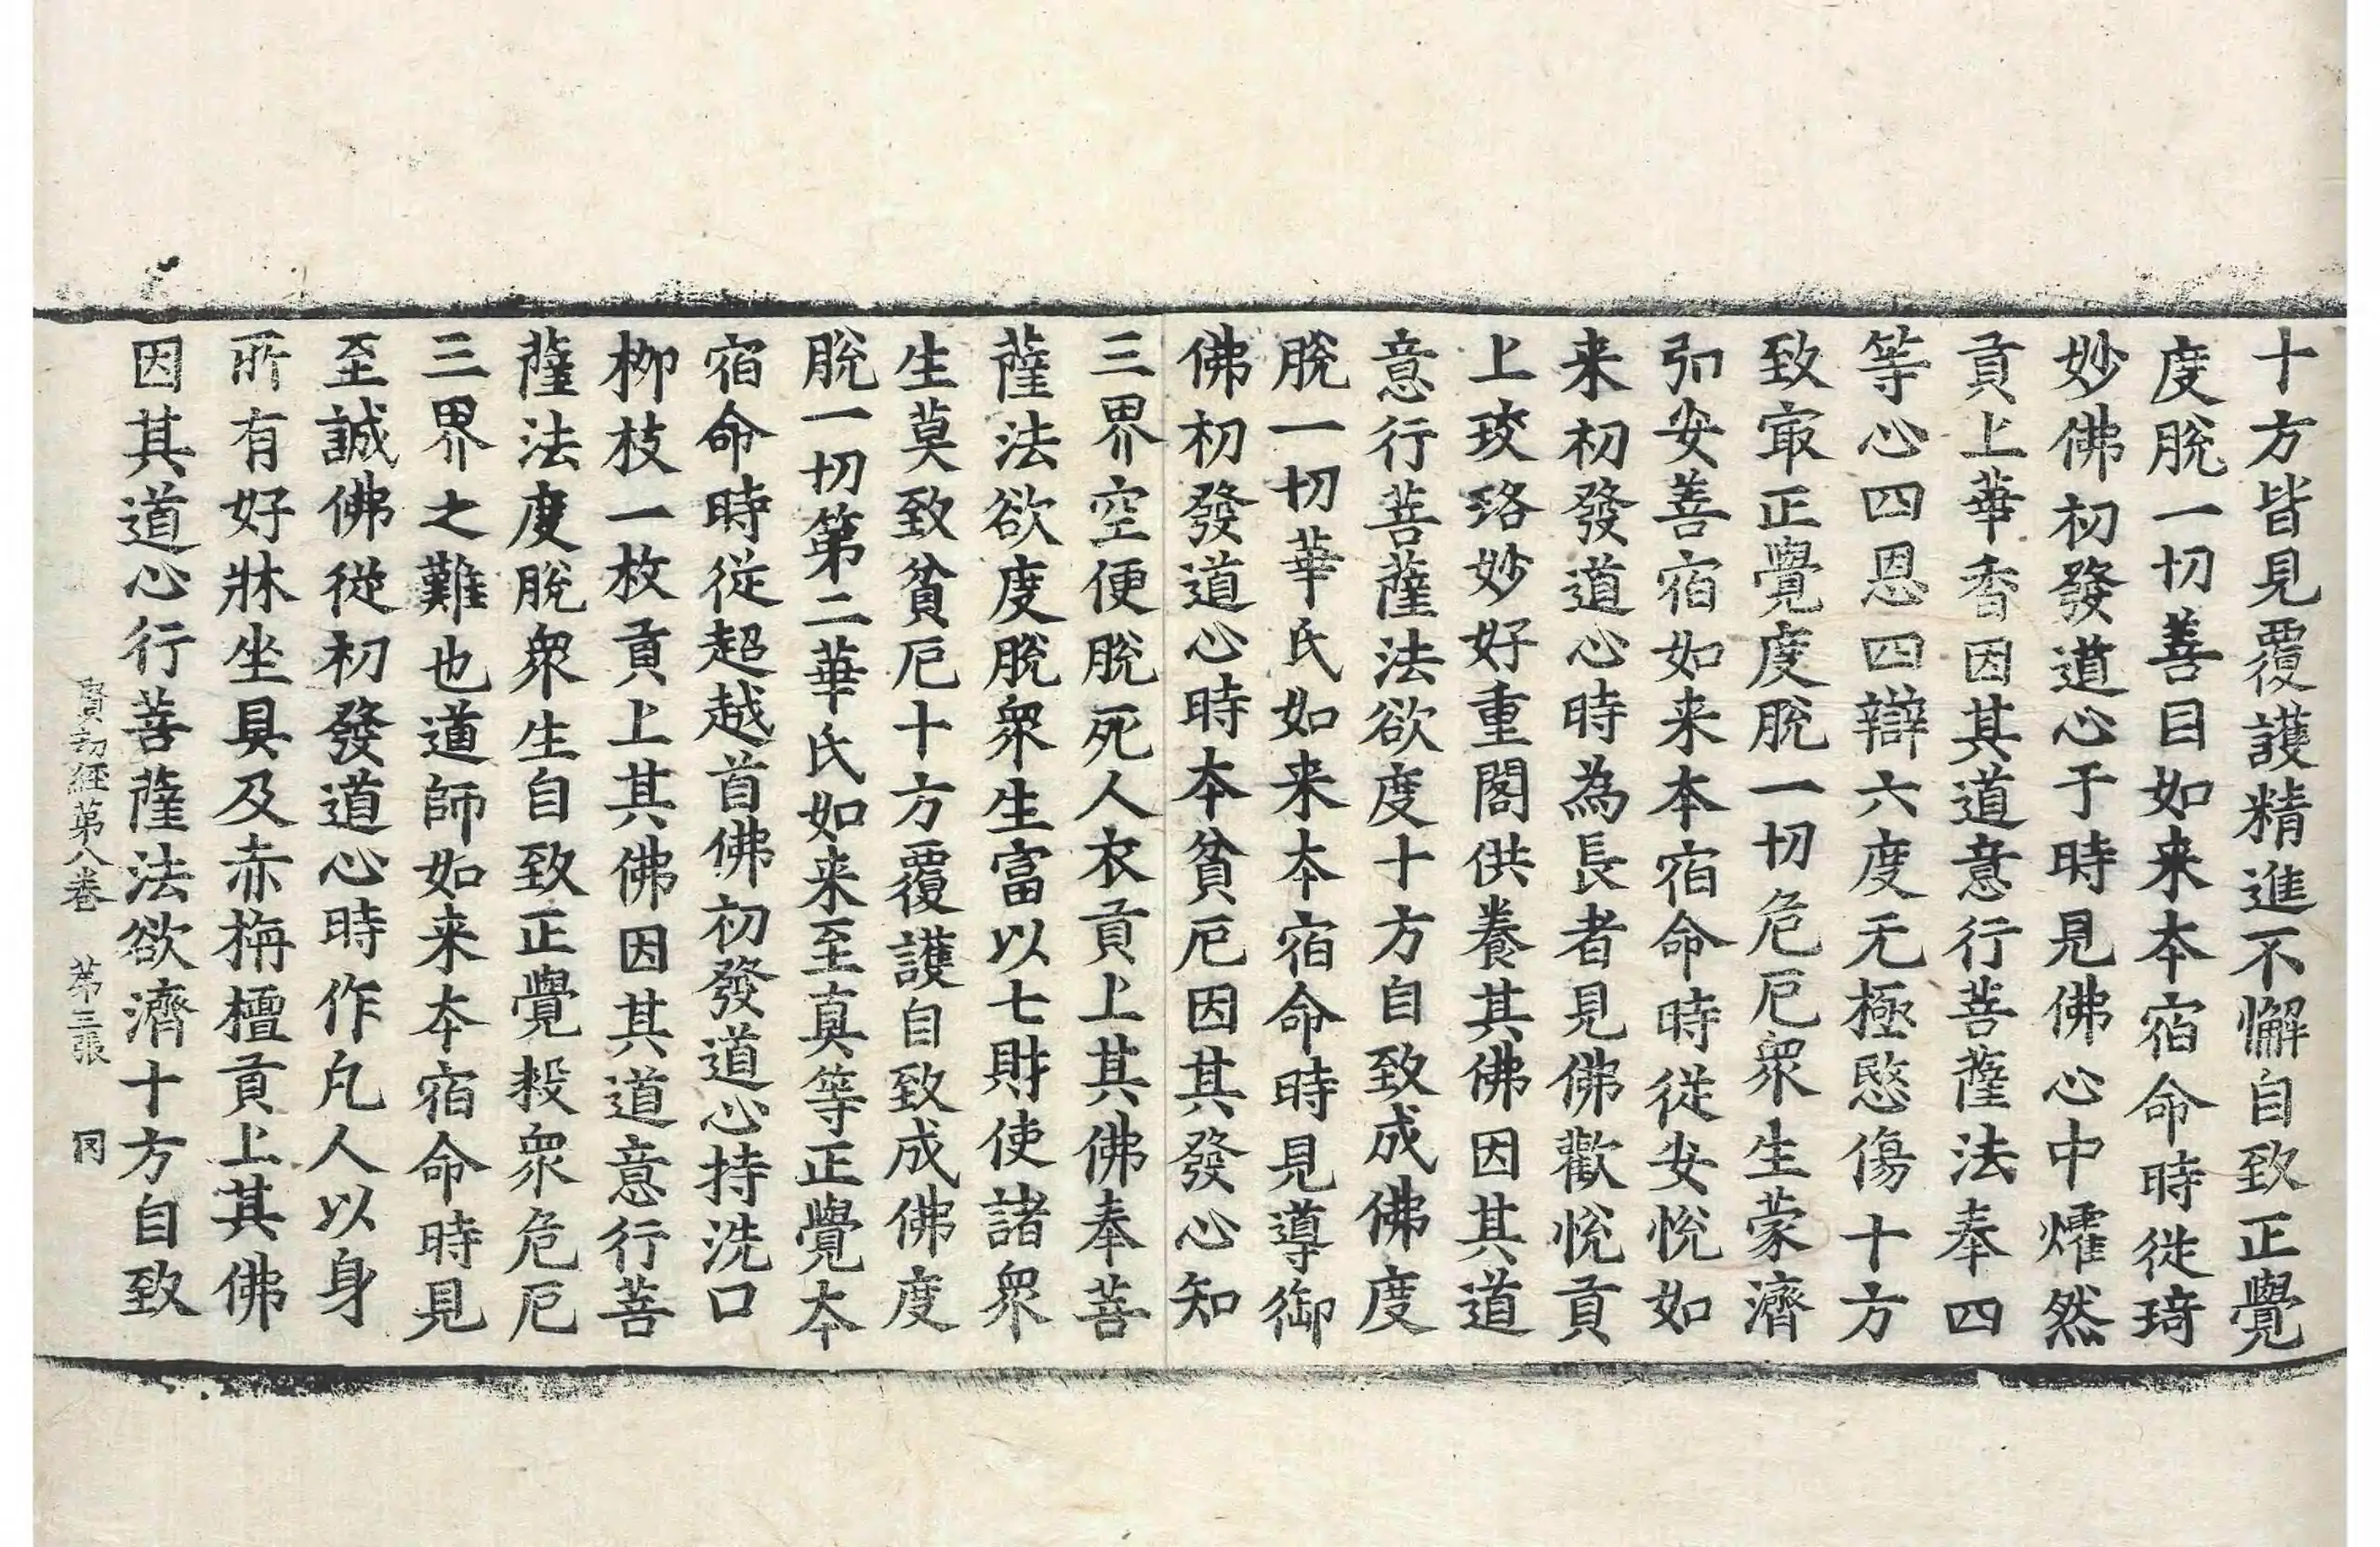 十方皆見覆護精進不懈自致正覺
度脫一切善目如来夲宿命時從琦
妙佛初發道心于時見佛心中㸌然
貢上華香因其道意行菩薩法奉四
等心四恩四辯六度无極愍傷十方
致冣正覺度脫一切危厄衆生蒙濟
弘安善宿如来夲宿命時從安悅如
来初發道心時為長者見佛歡悅貢
上珓珞妙好重閣供養其佛因其道
意行菩薩法欲度十方自致成佛度
脫一切華氏如来夲宿命時見導御
佛初發道心時夲貧厄因其發心知
三界空便脫死人衣貢上其佛奉菩
薩法欲度脫衆生富以七財使諸衆
生莫致貧厄十方覆護自致成佛度
脫一切第二華氏如来至真等正覺夲
宿命時從超越首佛初發道心持洗口
柳枝一枚貢上其佛因其道意行菩
薩法度脫衆生自致正覺殺衆危厄
三界之難也道師如来夲宿命時見
至誠佛從初發道心時作凡人以身
所有好牀坐具及赤栴檀貢上其佛
因其道心行菩薩法欲濟十方自致
賢劫經第八卷 苐三張 冈